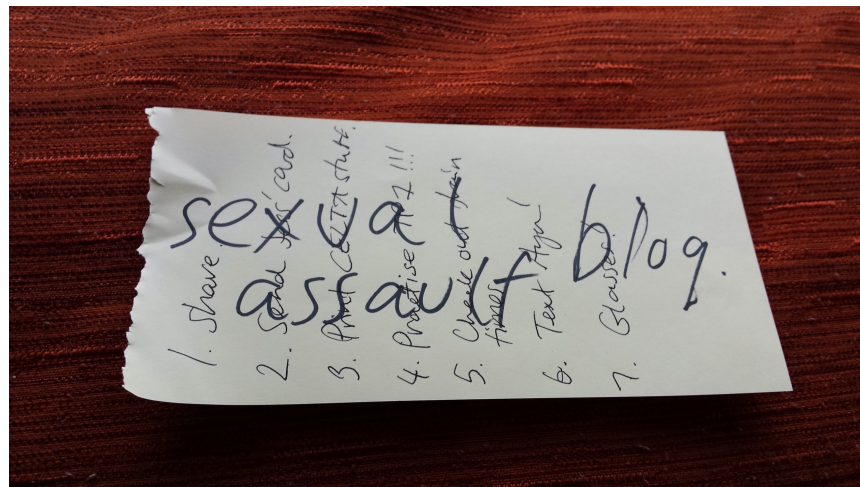 sexual
assault blog.
1. Shave
2. Send card.
3. Print CELTA stuff.
4. Practise !!!
5. Check out train
times
6. Text
7. Glasses!